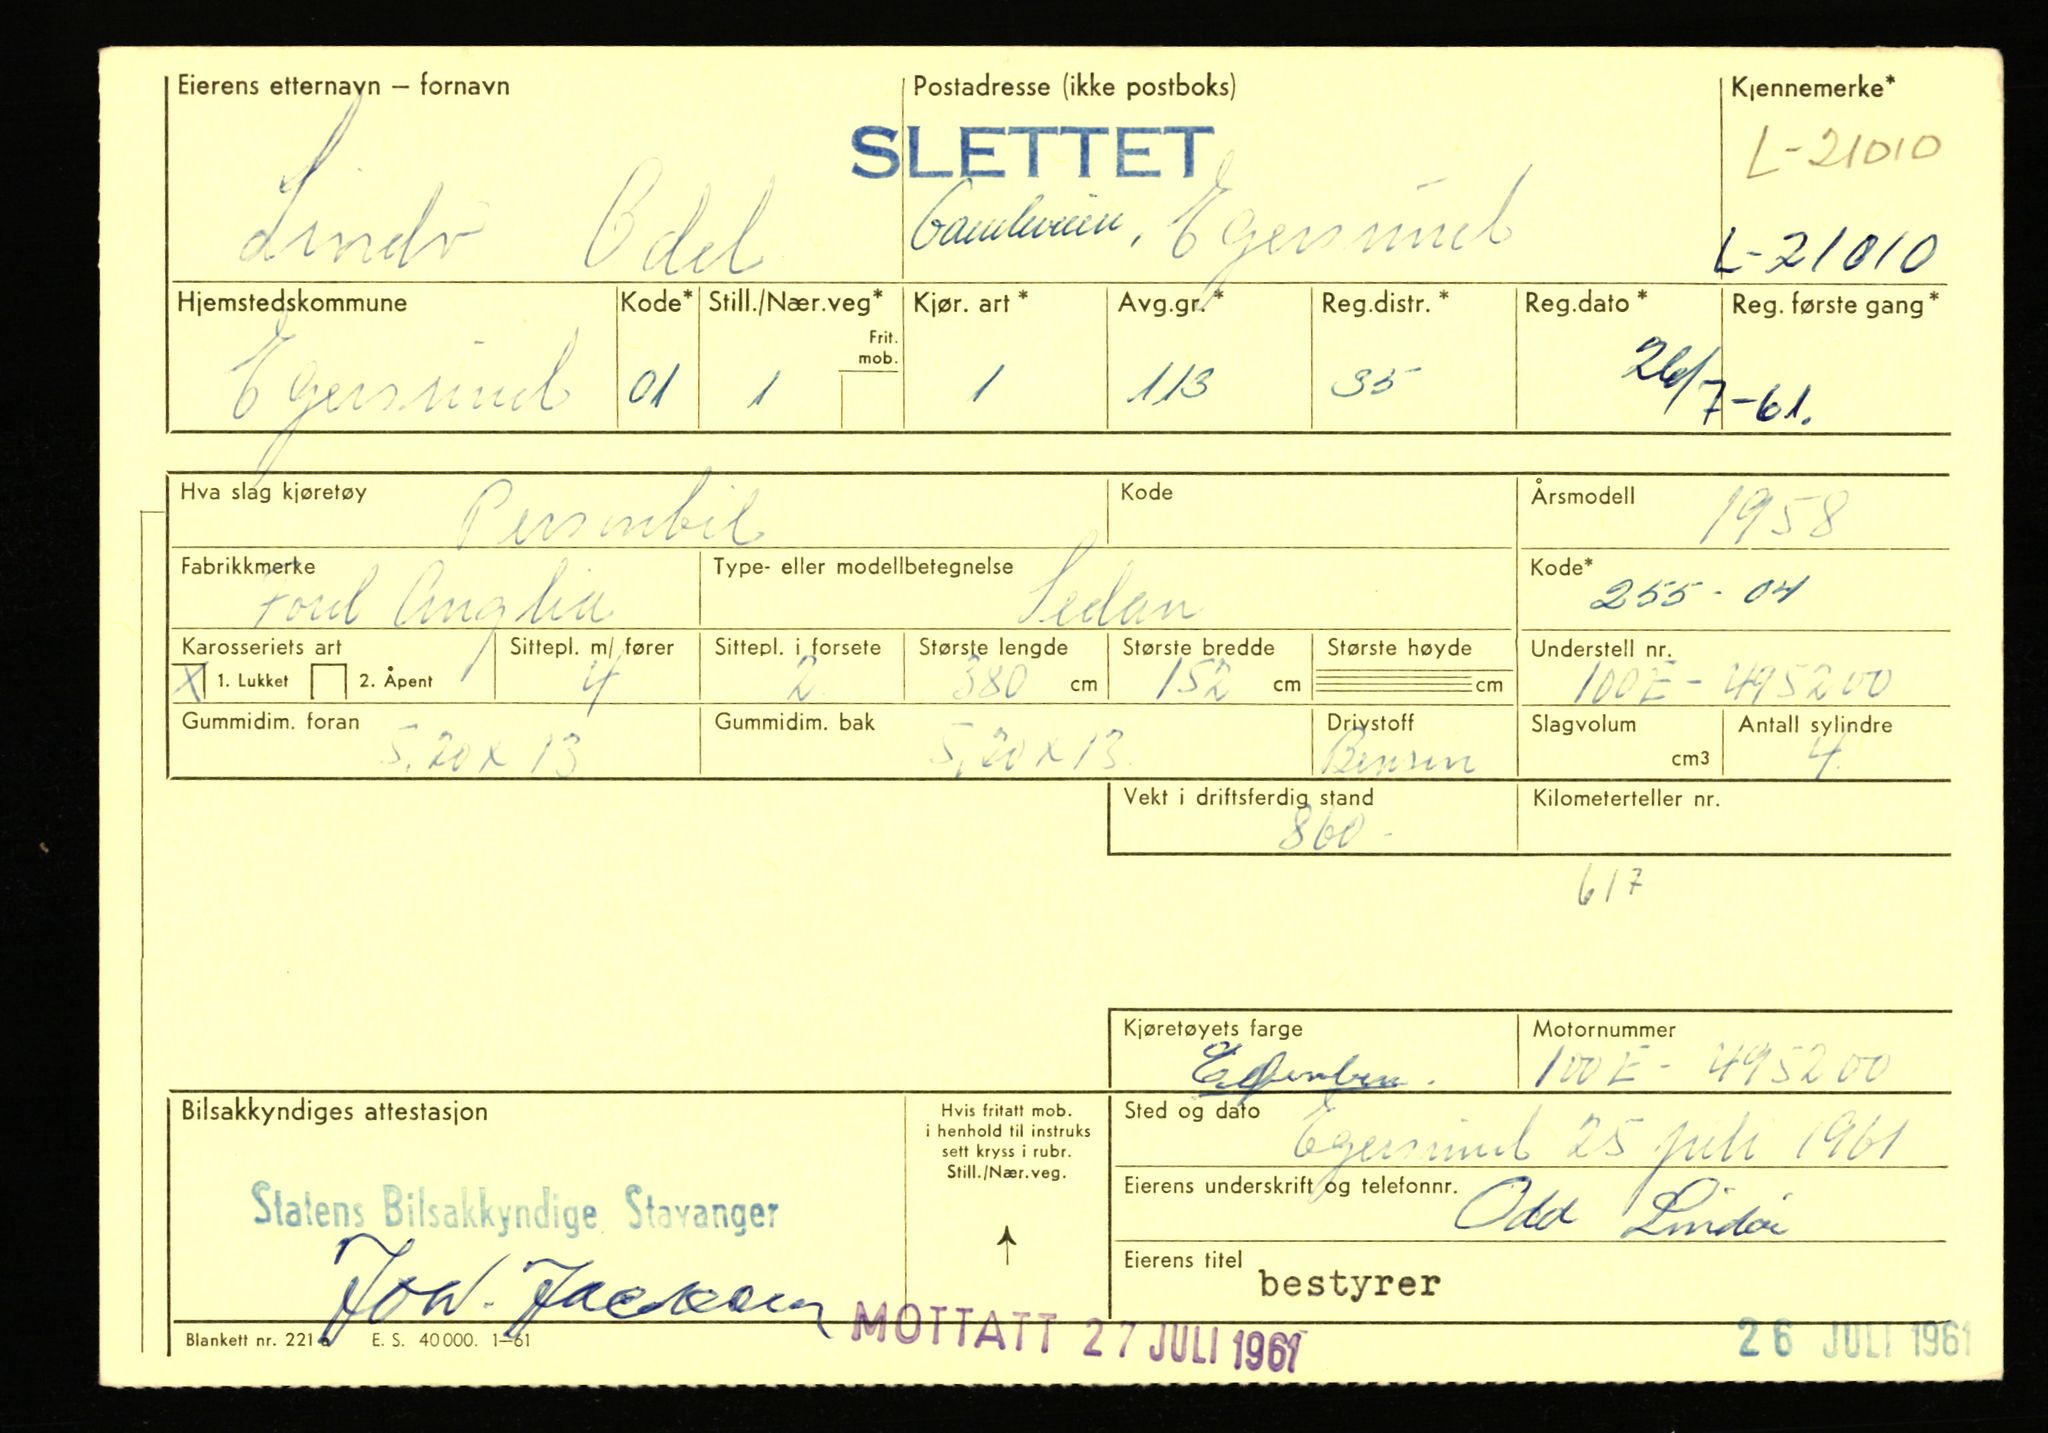 Eierens etternavn – fornavn Postadresse (ikke postboks) Kjennemerke*
SLETTET L-21010
Lindö Odd Gamleveien, Egersund L-21010
Hjemstedskommune Kode* Still./Nær.veg* Kjør. art* Avg.gr.* Reg.distr.* Reg.dato* Reg. første gang*
Frit. mob.
Egersund 01 1 1 113 35 26/7-61.
Hva slag kjøretøy Kode Årsmodell
Personbil 1958
Fabrikkmerke Type- eller modellbetegnelse Kode*
Ford Anglia Sedan 255-04
Karosseriets art Sittepl. m/ fører Sittepl. i forsete Største lengde Største bredde Største høyde Understell nr.
X 1. Lukket 2. Åpent 4 2 380 cm 152 cm cm 100E-495200
Gummidim. foran Gummidim. bak Drivstoff Slagvolum Antall sylindre
5,20 x 13 5,20 x 13 Bensin cm3 4
Vekt i driftsferdig stand Kilometerteller nr.
860-
617
Kjøretøyets farge Motornummer
100E-495200
Bilsakkyndiges attestasjon Hvis fritatt mob. i henhold til instruks sett kryss i rubr. Still./Nær.veg.
Sted og dato
Egersund 25 juli 1961
Statens Bilsakkyndige Stavanger
Eierens underskrift og telefonnr.
Odd Lindöe
Eierens titel
bestyrer
MOTTATT 27 JULI 1961 26 JULI 1961
Blankett nr. 221 a E. S. 40000. 1–61